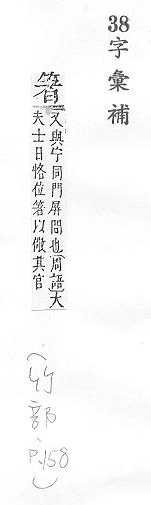 38字彙補
箸
又與宁同門屏間也周語大
夫士日恪位箸以儆其官
(竹部、P.158)